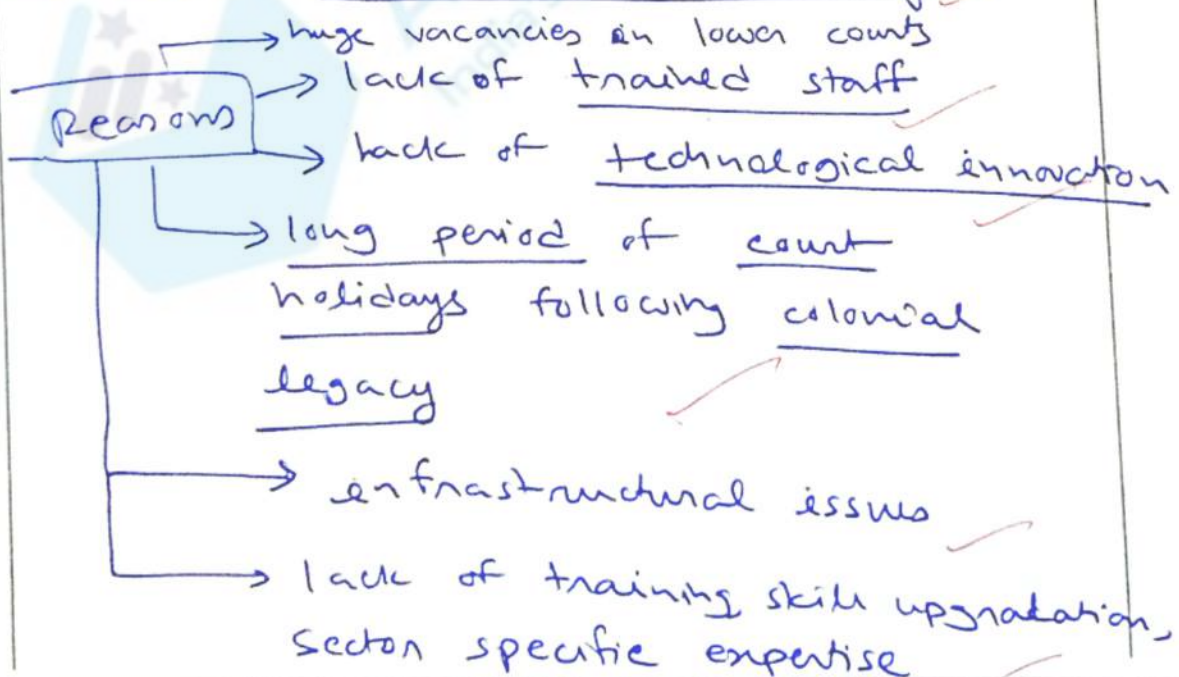 huge vacancies in lower courts
lack of trained staff
Reasons
lack of technological innovation
long period of court
holidays following colonial
legacy
infrastructural issues
lack of training, skill upgradation,
sector specific expertise